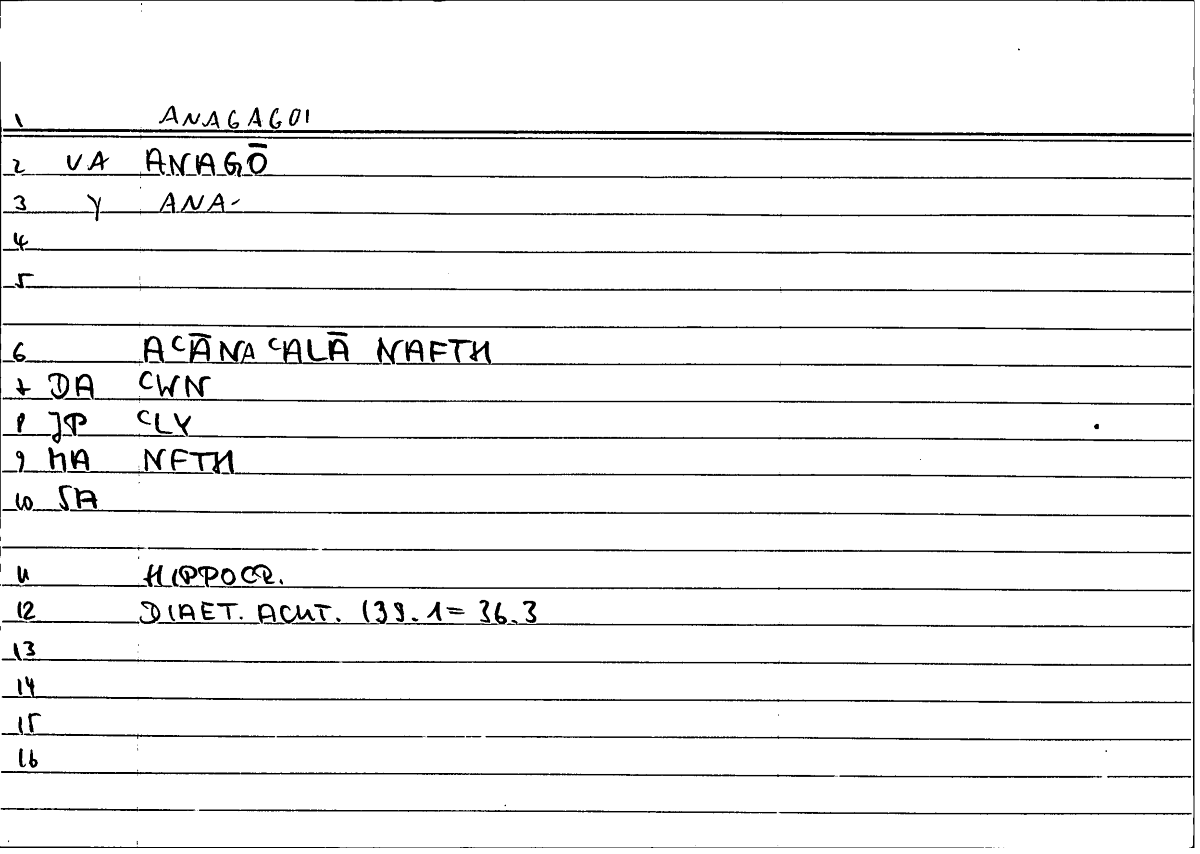 1 ANAGAGOI
2 VA ANAGŌ
3 Y ANA-
4
5
6 AʿĀNA ʿALĀ NAFTH
7 DA ʿWN
8 JP ʿLY
9 MA NFTH
10 SA
11 HIPPOCR.
12 DIAET. ACUT. 139.1 = 36.3
13
14
15
16